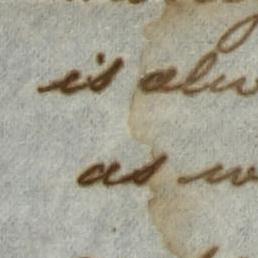 is alw
as w